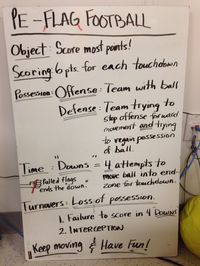 PE - FLAG FOOTBALL
Object: Score most points!
Scoring: 6 pts. for each touchdown
Possession: Offense: Team with ball
Defense: Team trying to
stop offense forward
movement and trying
to regain possession
of ball.
Time: "Downs" = 4 attempts to
move ball into end-
zone for touchdown.
Pulled flags
ends the down.
Turnovers: Loss of possession.
1. Failure to score in 4 Downs
2. INTERCEPTION
Keep moving & Have Fun!